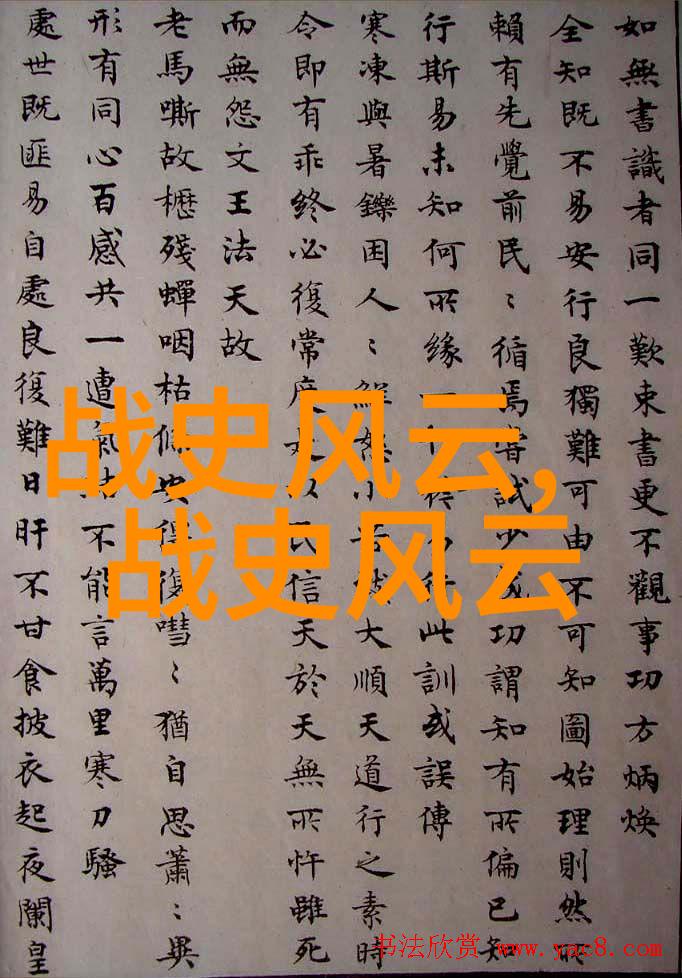 如無書識者同一歎束書更不觀事功方炳煥
全知既不易安行良獨難可由不可知圖始理則然所
賴有先覺前民〻循焉嘗試少成功謂知有所偏已知
行斯易未知何所緣一行此訓或誤傳
寒凍與暑鑠困人〻鮮怨小然大順天道行之素時
令即有乖終必復常度是以民信天於天無所忤雖死
而無怨文王法天故
老馬嘶故櫪殘蟬咽枯條安得復嘒〻猶自思蕭〻異
形有同心百感共一遭氣結不能言萬里寒刀騷
處世既匪易自處良復難日旰不甘食披衣起夜闌皇
战史风云,
战史风云
书法欣赏 www.yac8.com